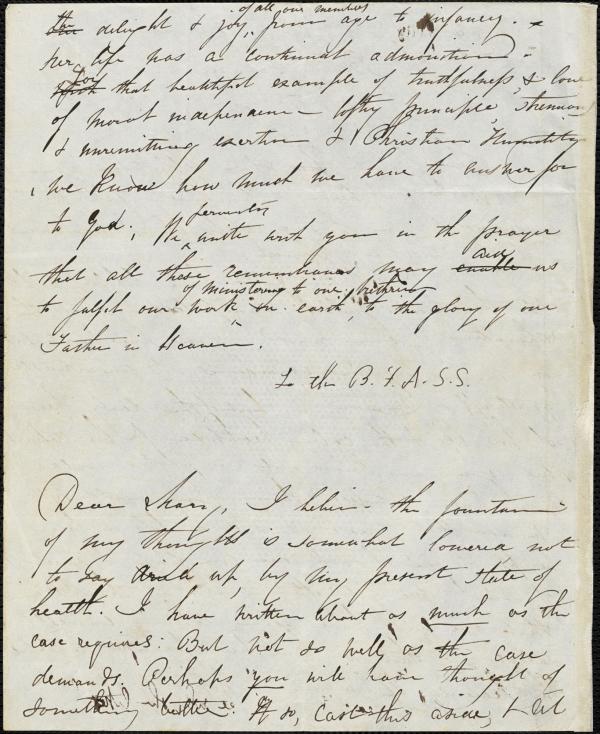 of all our members
the delight & joy, from age to infancy.
her life was a continual admonition.
for
that beautiful example of truthfulness, & love
of moral independence lofty principle, strenuous
& unremitting exertion & Christian Humility
we know how much we have to answer for
to God. We fervently unite with you in the prayer
aid
that all these remembrances may enable us
of ministering to our brethren
to fulfil our work on earth, to the glory of our
Father in Heaven.
To the B. F. A. S. S.
Dear Mary, I believe the fountain
of my thoughts is somewhat lowered not
to say dried up, by my present state of
health. I have written about as much as the
case requires: But not so well as the case
demands. Perhaps you will have thought of
something better. If so, cast this aside, & let